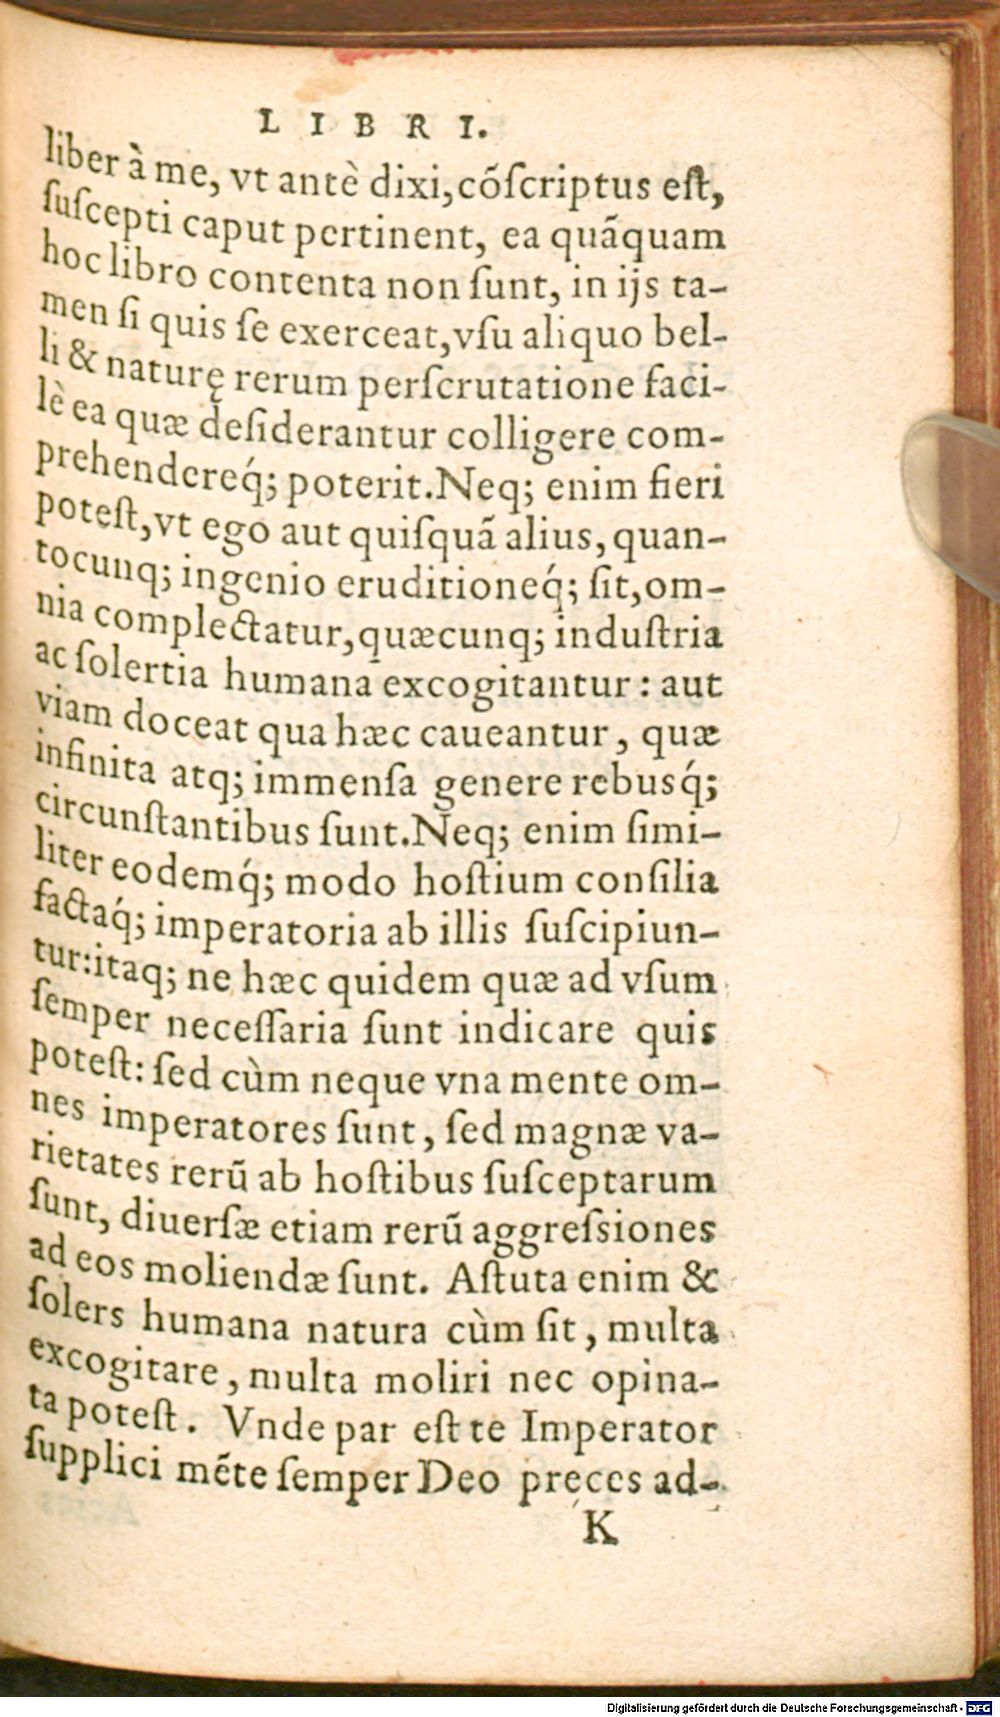 LIBRI.
liber à me, vt antè dixi,cõſcriptus eſt,
ſuſcepti caput pertinent, ea quãquam
hoc libro contenta non ſunt, in ijs ta-
men ſi quis ſe exerceat,vſu aliquo bel-
li & naturę rerum perſcrutatione faci-
lè ea quæ deſiderantur colligere com-
prehendereq́; poterit.Neq; enim fieri
poteſt,vt ego aut quiſquã alius,quan-
tocunq; ingenio eruditioneq́; ſit,om-
nia complectatur,quæcunq; induſtria
ac ſolertia humana excogitantur: aut
viam doceat qua hæc caueantur, quæ
infinita atq; immenſa genere rebusq́;
circunſtantibus ſunt.Neq; enim ſimi-
liter eodemq́; modo hoſtium conſilia
factaq́; imperatoria ab illis ſuſcipiun-
tur:itaq; ne hæc quidem quæ ad vſum
ſemper neceſſaria ſunt indicare quis
poteſt: ſed cùm neque vna mente om-
nes imperatores ſunt, ſed magnæ va-
rietates rerũ ab hoſtibus ſuſceptarum
ſunt, diuerſæ etiam rerũ aggreſsiones
ad eos moliendæ ſunt. Aſtuta enim &
ſolers humana natura cùm ſit, multa
excogitare, multa moliri nec opina-
ta poteſt. Vnde par eſt te Imperator
ſupplici mẽte ſemper Deo preces ad-
K
Digitalisierung gefördert durch die Deutsche Forschungsgemeinschaft - DFG